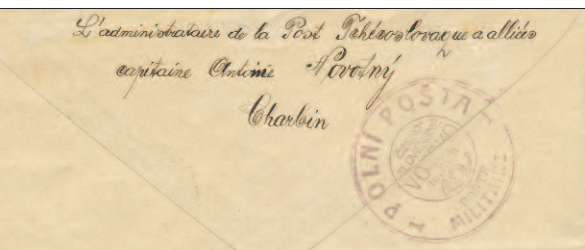 L'administrataire de la Post Tchécoslovaque a alliés
capitaine Antonie Novotný
Charbin
POLNÍ POŠTA
MILITAIRE